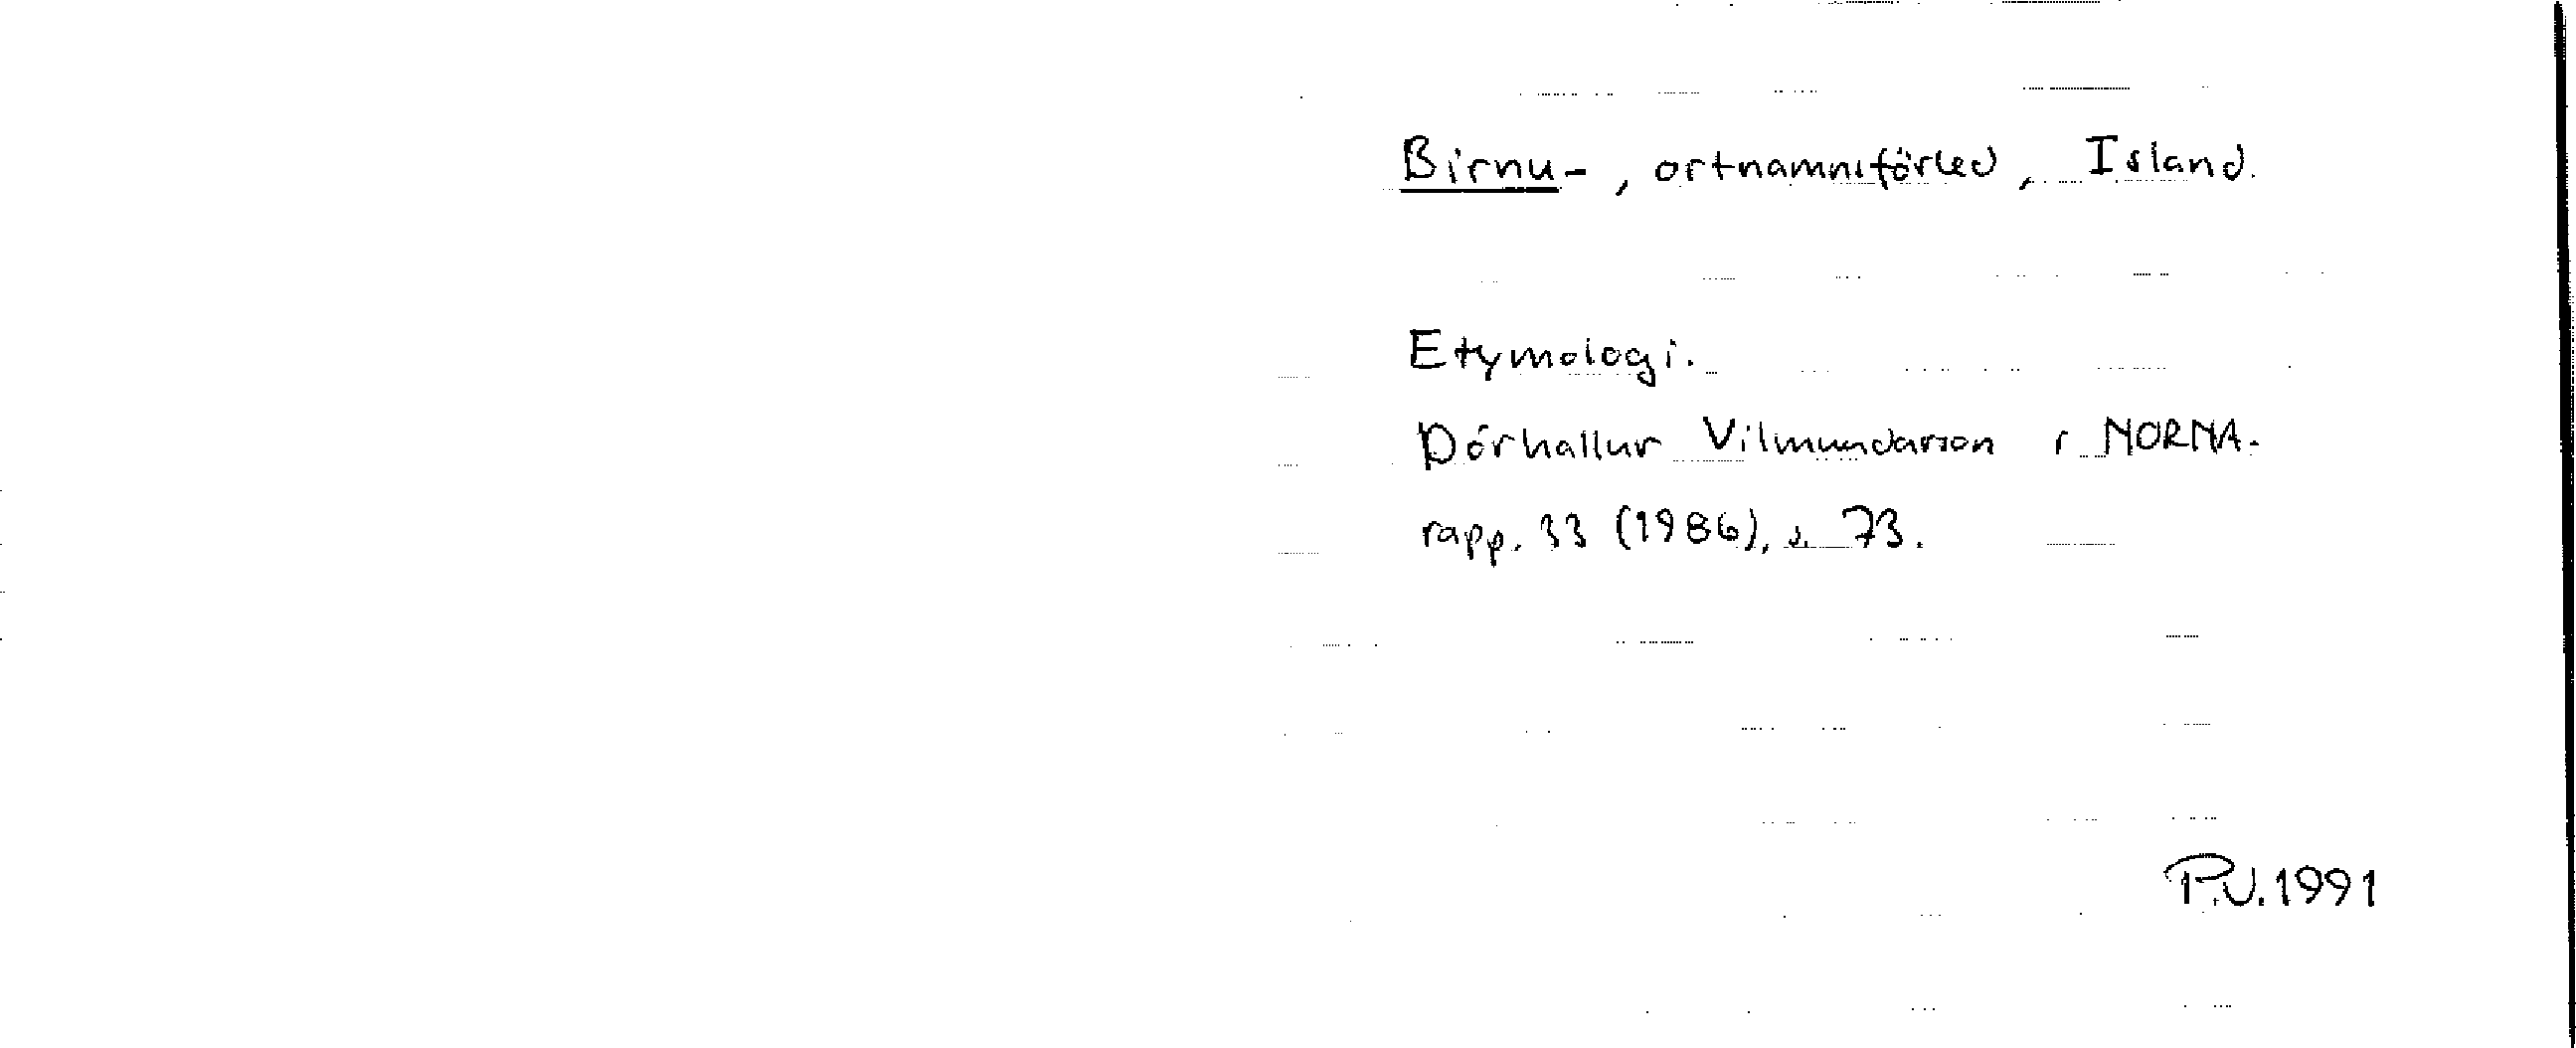 Birnu-, ortnamnsförled, Island.
Etymologi.
Þórhallur Vilmundarson i NORNA-
rapp. 33 (1986), s. 73.
P.V. 1991